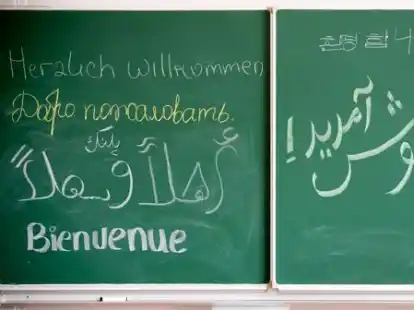 Herzlich willkommen
Добро пожаловать.
أهلاً وسهلاً
Bienvenue
وش آمدید!